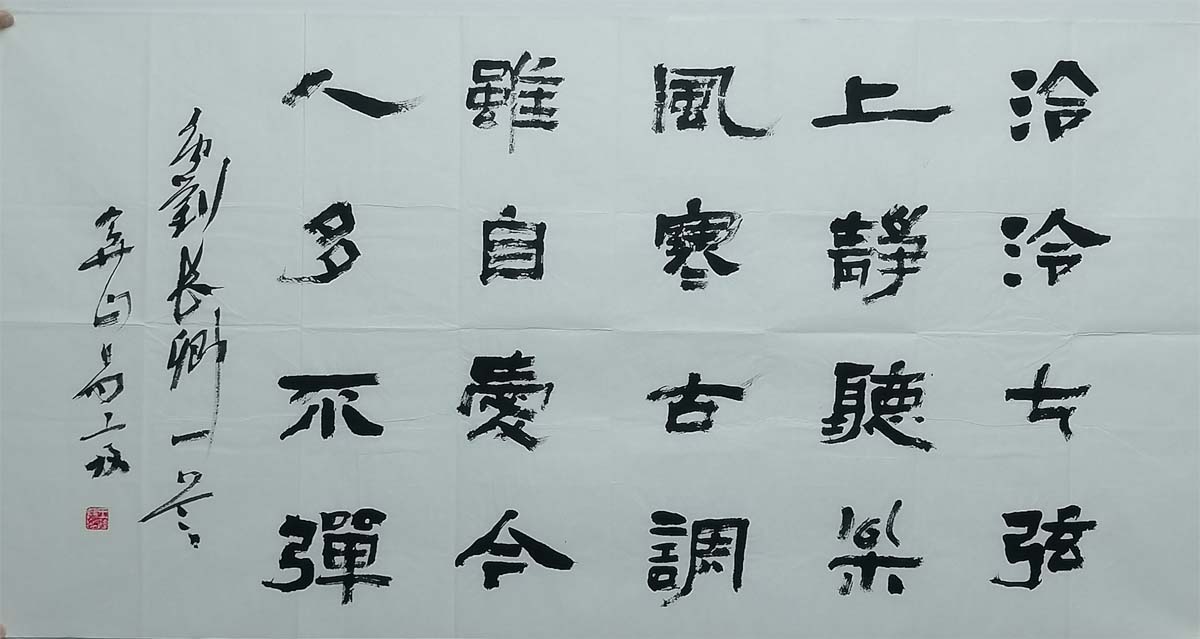 泠泠七弦
上靜聽枀
風寒古調
雖自愛今
人多不彈
劉長卿一